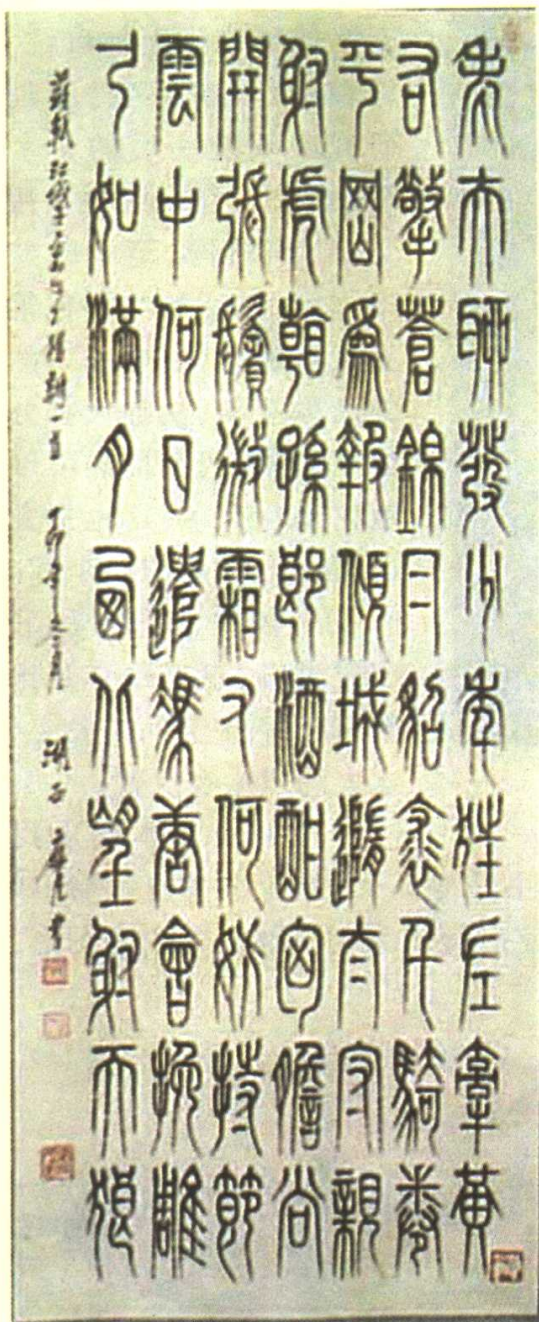 老夫聊發少年狂左牽黃
右擎蒼錦帽貂裘千騎卷
平岡爲報傾城隨太守親
射虎看孫郎酒酣胸膽尚
開張鬢微霜又何妨持節
雲中何日遣馮唐會挽雕
弓如滿月西北望射天狼
蘇軾江城子密州出獵詞一首 丁卯年 書